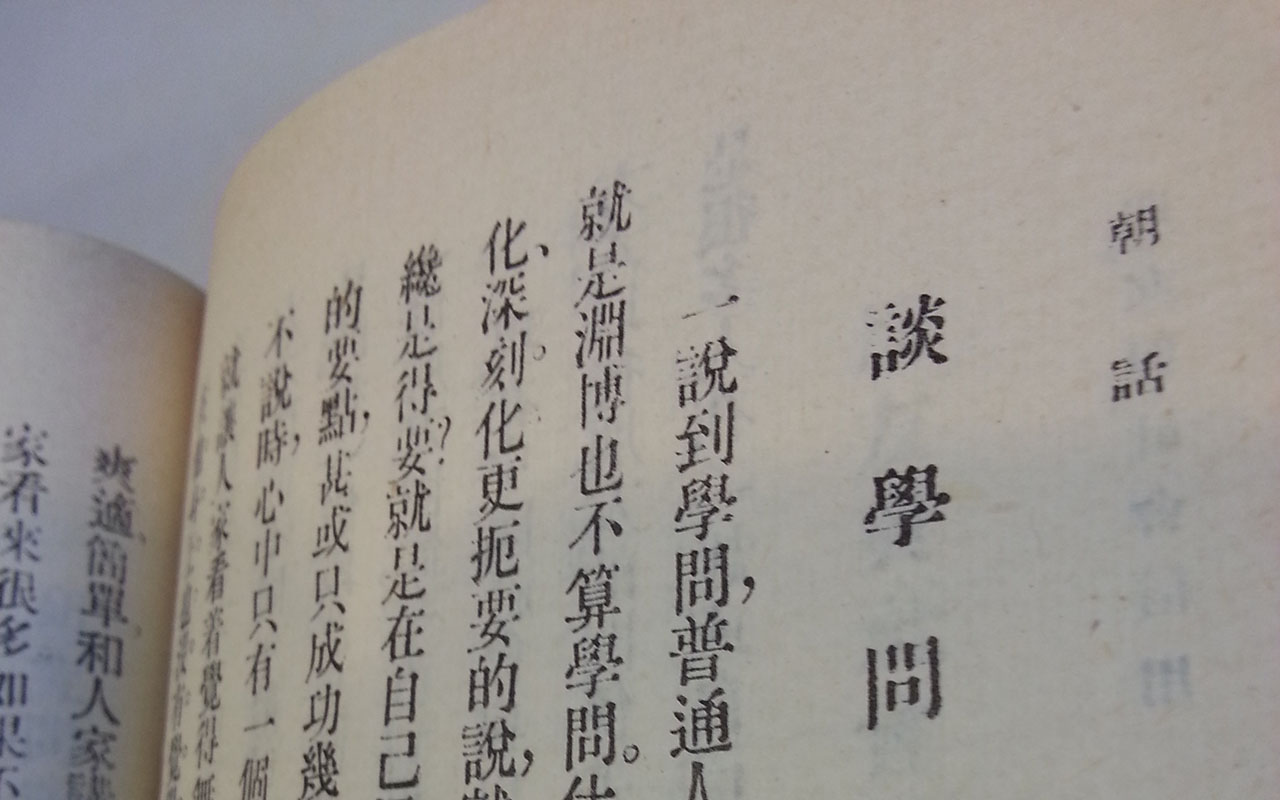 朝話
談學問
一說到學問，普通人
就是淵博也不算學問。
化、深刻化更扼要的說，
纔是得要？就是在自己
的要點，甚或只成功幾
不說時，心中只有一個
就讓人家看着覺得無
爽適簡單和人家
家看來很多如果不